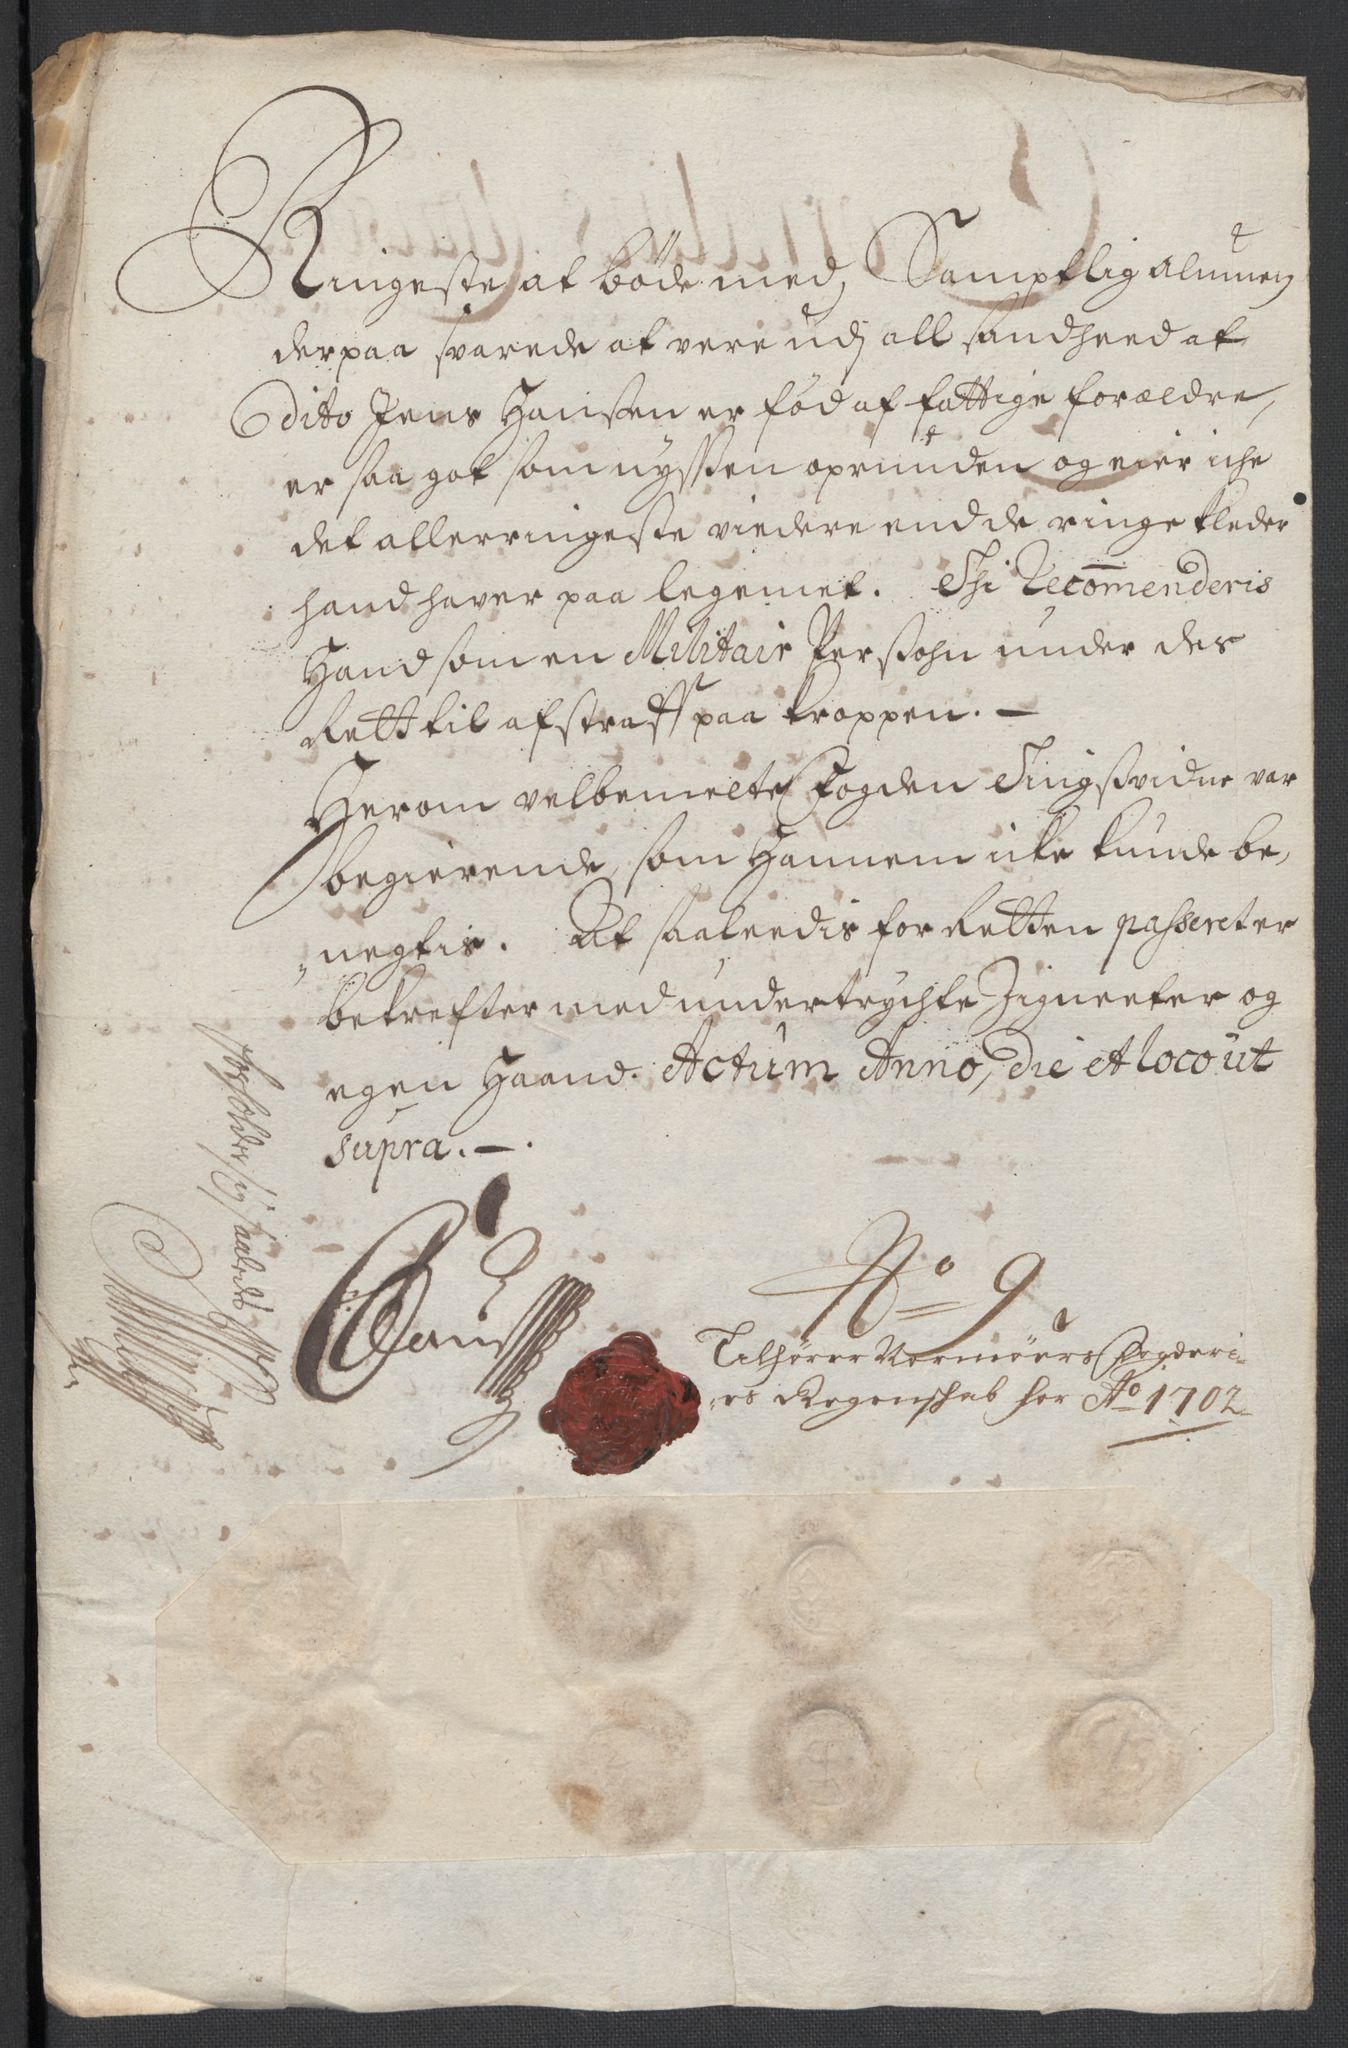 Ringeste at böde med, Samptlig Almuen
derpaa svarede at vere udj all sandheed at
dito Jens Hanßen er fød af fattige forældre,
er saa got som nyßen oprunden og eier iche
det allerringeste viedere end de ringe kleder
hand haver paa legemet. Thi Recom̅enderis
Hand som en Militair Perßohn under des
Rett til afstraff paa kroppen. —
Herom velbemelte Fogden Tingßvidne var
begierende, som Hannem icke kunde be,
„negtis. At saaleedis for Retten passeret er
bekrefter med undertrychte Zigneeter og
egen Haand. Actum Anno, die et loco ut
supra. —.
No 9
Tilhører Normøers Fogderi-
„es Regenschab for Ao 1702
forholder sig saaledis